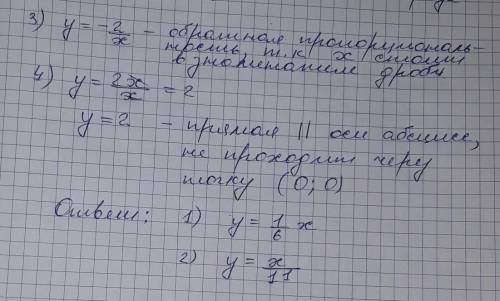 3) y = -2/x - обратная пропорциональ-
ность, т.к. x стоит
в знаменателе дроби
4) y = 2x/x = 2
y = 2 - прямая || оси абсцисс,
не проходит через
точку (0; 0)
Ответ: 1) y = 1/6 x
2) y = x/11